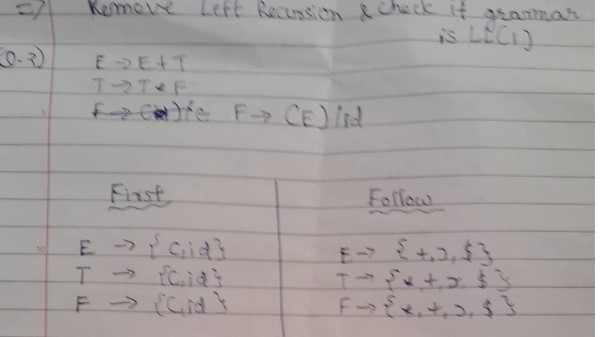 => Remove Left Recursion & Check if grammar
is LL(1)
Q.3) E → E + T
T → T * F
F → (E) | id
First Follow
E → {(, id} E → {+, ), $}
T → {(, id} T → {*, +, ), $}
F → {(, id} F → {*, +, ), $}